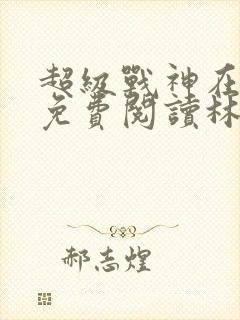 超級戰神在
免費閱讀林
郝志煌